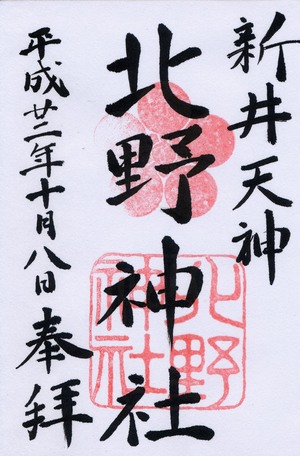 新井天神
北野神社
平成廿二年十月八日奉拝
北野
神社